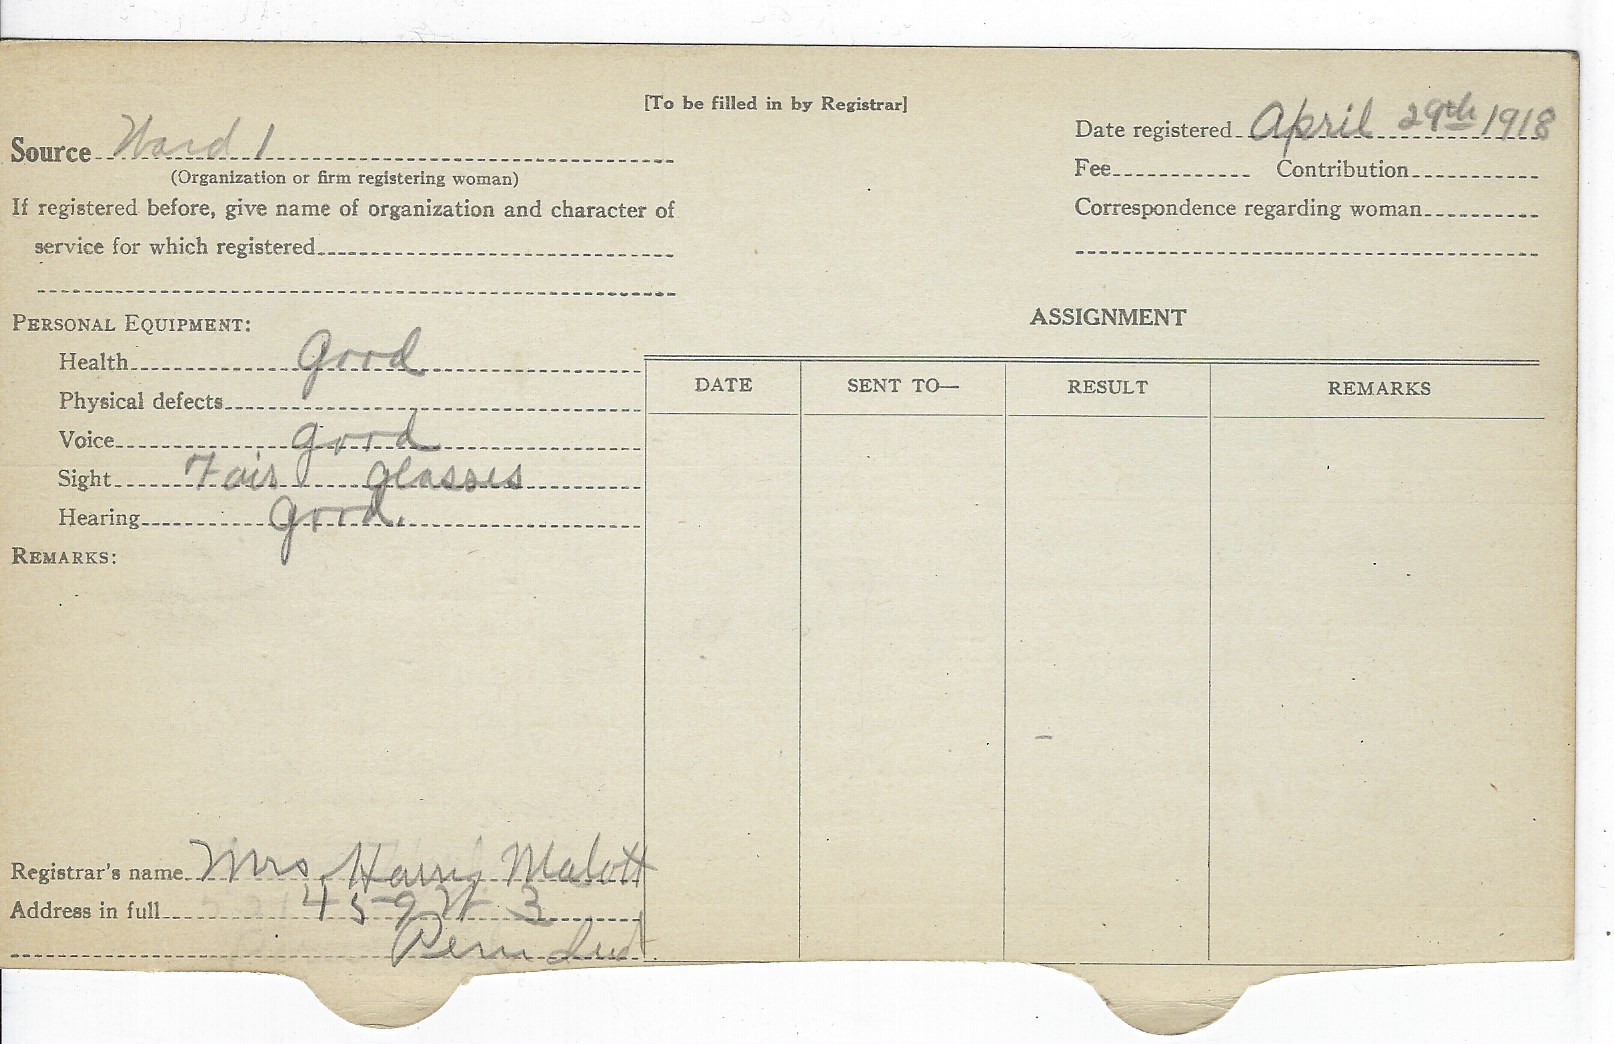 [To be filled in by Registrar]
Source Ward 1
(Organization or firm registering woman)
If registered before, give name of organization and character of
service for which registered
Date registered April 29th 1918
Fee Contribution
Correspondence regarding woman
PERSONAL EQUIPMENT:
Health Good
Physical defects
Voice good
Sight Fair glasses
Hearing Good.
REMARKS:
ASSIGNMENT
DATE SENT TO— RESULT REMARKS
Registrar's name Mrs Harry Malott
Address in full 459 W 3
Peru Ind